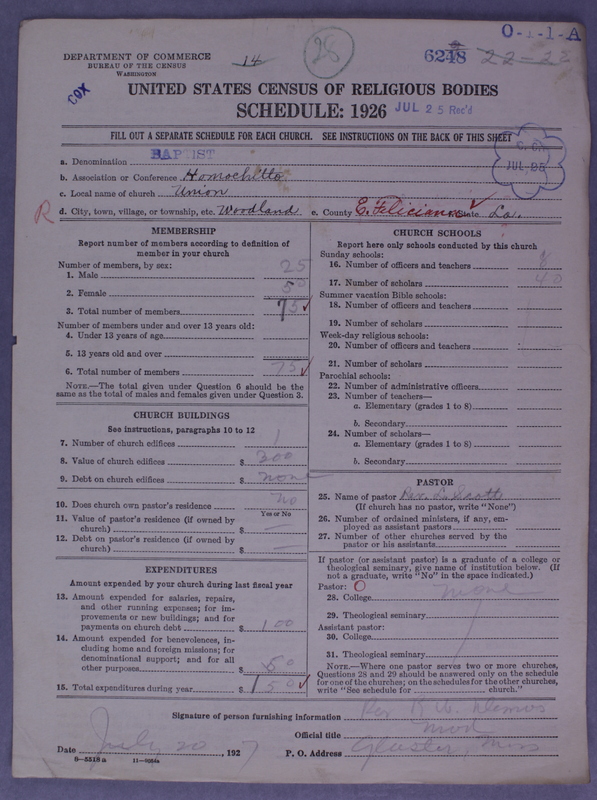 O-1-1-A
DEPARTMENT OF COMMERCE
BUREAU OF THE CENSUS
WASHINGTON
14
28
6248
22-22
COX
UNITED STATES CENSUS OF RELIGIOUS BODIES
SCHEDULE: 1926
JUL 25 Rec'd
FILL OUT A SEPARATE SCHEDULE FOR EACH CHURCH. SEE INSTRUCTIONS ON THE BACK OF THIS SHEET
JUL 25
a. Denomination BAPTIST
b. Association or Conference Homochitto
c. Local name of church Union
R d. City, town, village, or township, etc. Woodland e. County E. Feliciana State La.
MEMBERSHIP
Report number of members according to definition of
member in your church
Number of members, by sex:
1. Male 25
2. Female 50
3. Total number of members 75
Number of members under and over 13 years old:
4. Under 13 years of age
5. 13 years old and over
6. Total number of members 75
NOTE.—The total given under Question 6 should be the
same as the total of males and females given under Question 3.
CHURCH BUILDINGS
See instructions, paragraphs 10 to 12
7. Number of church edifices 1
8. Value of church edifices $ 300
9. Debt on church edifices $ none
10. Does church own pastor's residence no
Yes or No
11. Value of pastor's residence (if owned by
church) $ —
12. Debt on pastor's residence (if owned by
church) $ —
EXPENDITURES
Amount expended by your church during last fiscal year
13. Amount expended for salaries, repairs,
and other running expenses; for im-
provements or new buildings; and for
payments on church debt $ 100
14. Amount expended for benevolences, in-
cluding home and foreign missions; for
denominational support; and for all
other purposes $ 50
15. Total expenditures during year $ 150
CHURCH SCHOOLS
Report here only schools conducted by this church
Sunday schools:
16. Number of officers and teachers 8
17. Number of scholars 40
Summer vacation Bible schools:
18. Number of officers and teachers
19. Number of scholars
Week-day religious schools:
20. Number of officers and teachers
21. Number of scholars
Parochial schools:
22. Number of administrative officers
23. Number of teachers—
a. Elementary (grades 1 to 8)
b. Secondary
24. Number of scholars—
a. Elementary (grades 1 to 8)
b. Secondary
PASTOR
25. Name of pastor Rev. L. Scott
(If church has no pastor, write "None")
26. Number of ordained ministers, if any, em-
ployed as assistant pastors
27. Number of other churches served by the
pastor or his assistants
If pastor (or assistant pastor) is a graduate of a college or
theological seminary, give name of institution below. (If
not a graduate, write "No" in the space indicated.)
Pastor: O
28. College none
29. Theological seminary
Assistant pastor:
30. College
31. Theological seminary
NOTE.—Where one pastor serves two or more churches,
Questions 28 and 29 should be answered only on the schedule
for one of the churches; on the schedules for the other churches,
write "See schedule for church."
Signature of person furnishing information Rev R.
Official title Mod
Date July 20, 1927 P. O. Address Gloster, Miss
8-5518a 11-9664a